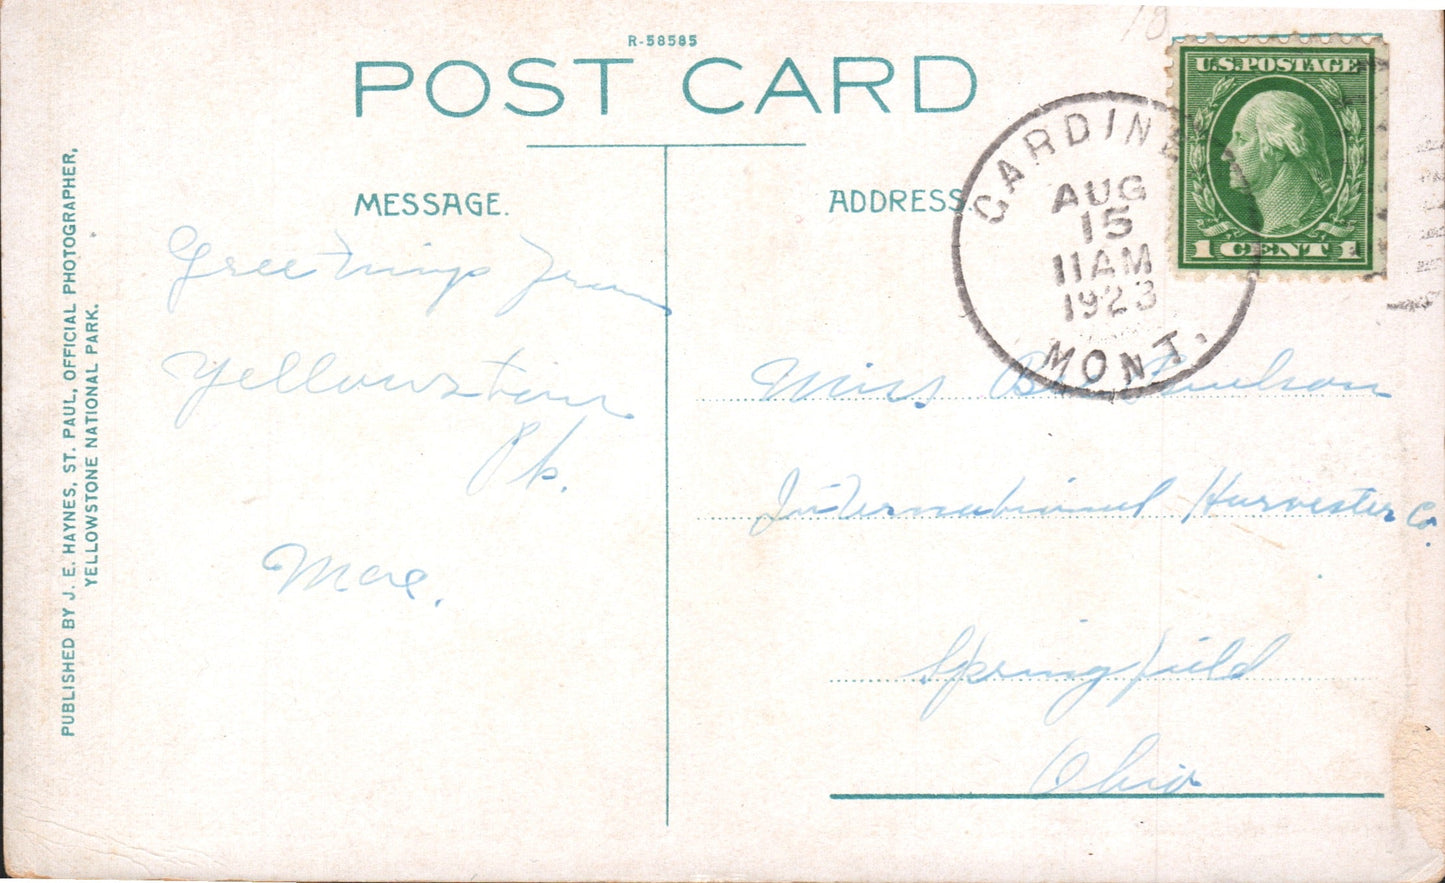 R-58585
POST CARD
MESSAGE.
ADDRESS.
U.S.POSTAGE
1 CENT 1
CARDINE
AUG
15
11AM
1923
MONT.
Greetings from
Yellowstone
Pk.
Mae.
Miss
International Harvester Co.
Springfield
Ohio
PUBLISHED BY J. E. HAYNES, ST. PAUL, OFFICIAL PHOTOGRAPHER,
YELLOWSTONE NATIONAL PARK.